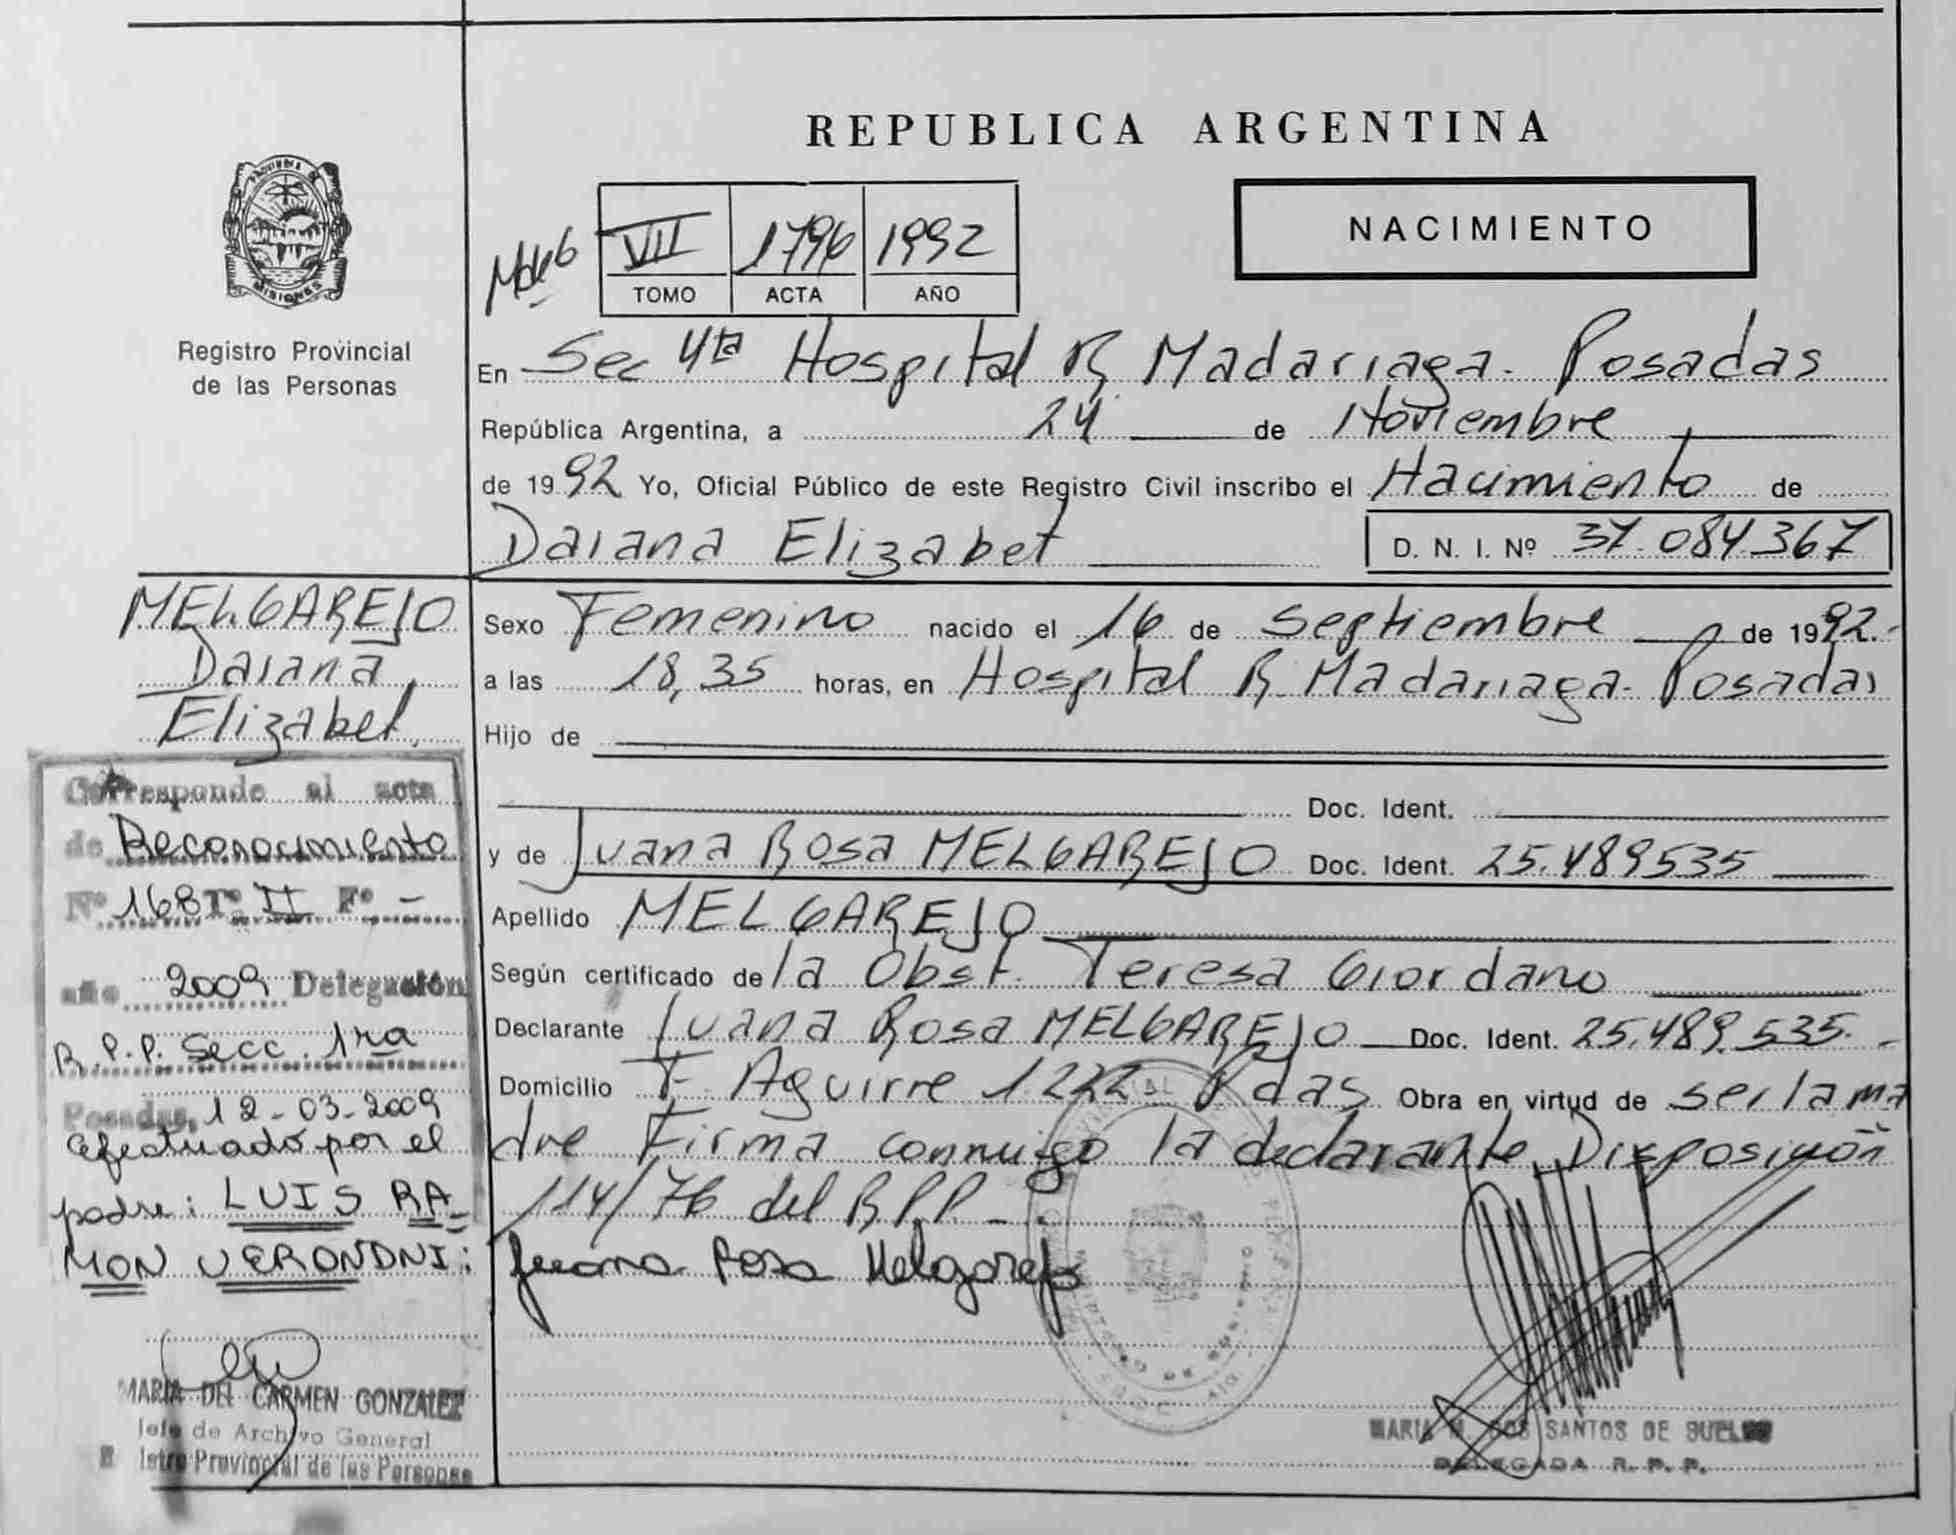 REPUBLICA ARGENTINA
NACIMIENTO
PROVINCIA DE
MISIONES
Registro Provincial
de las Personas
VII 1796 1992
TOMO ACTA AÑO
En Sec 4ta Hospital R Madariaga. Posadas
República Argentina, a 24 de Noviembre
de 1992 Yo, Oficial Público de este Registro Civil inscribo el Nacimiento de
Daiana Elizabet D. N. I. Nº 37.084.367
MELGAREJO
Daiana
Elizabet
Sexo Femenino nacido el 16 de Septiembre de 1992.-
a las 18,35 horas, en Hospital R. Madariaga. Posadas
Hijo de
Doc. Ident.
y de Juana Rosa MELGAREJO Doc. Ident. 25.489535
Apellido MELGAREJO
Según certificado de la Obst. Teresa Giordano
Declarante Juana Rosa MELGAREJO Doc. Ident. 25.489.535.-
Domicilio F. Aguirre 1.222 Pdas Obra en virtud de ser la ma
dre Firma conmigo la declarante Disposición
114/76 del R P P.
Juana Rosa Melgarejo
MARIA M. DOS SANTOS DE
DELEGADA R. P. P.
Corresponde al acta
de Reconocimiento
Nº 168 Tº II Fº -
año 2009 Delegación
R.P.P. Secc. 1ra
Posadas, 12-03-2009
efectuado por el
padre: LUIS RA
MON VERONDNI:
MARIA DEL CARMEN GONZALEZ
Jefe de Archivo General
istro Provincial de las Personas